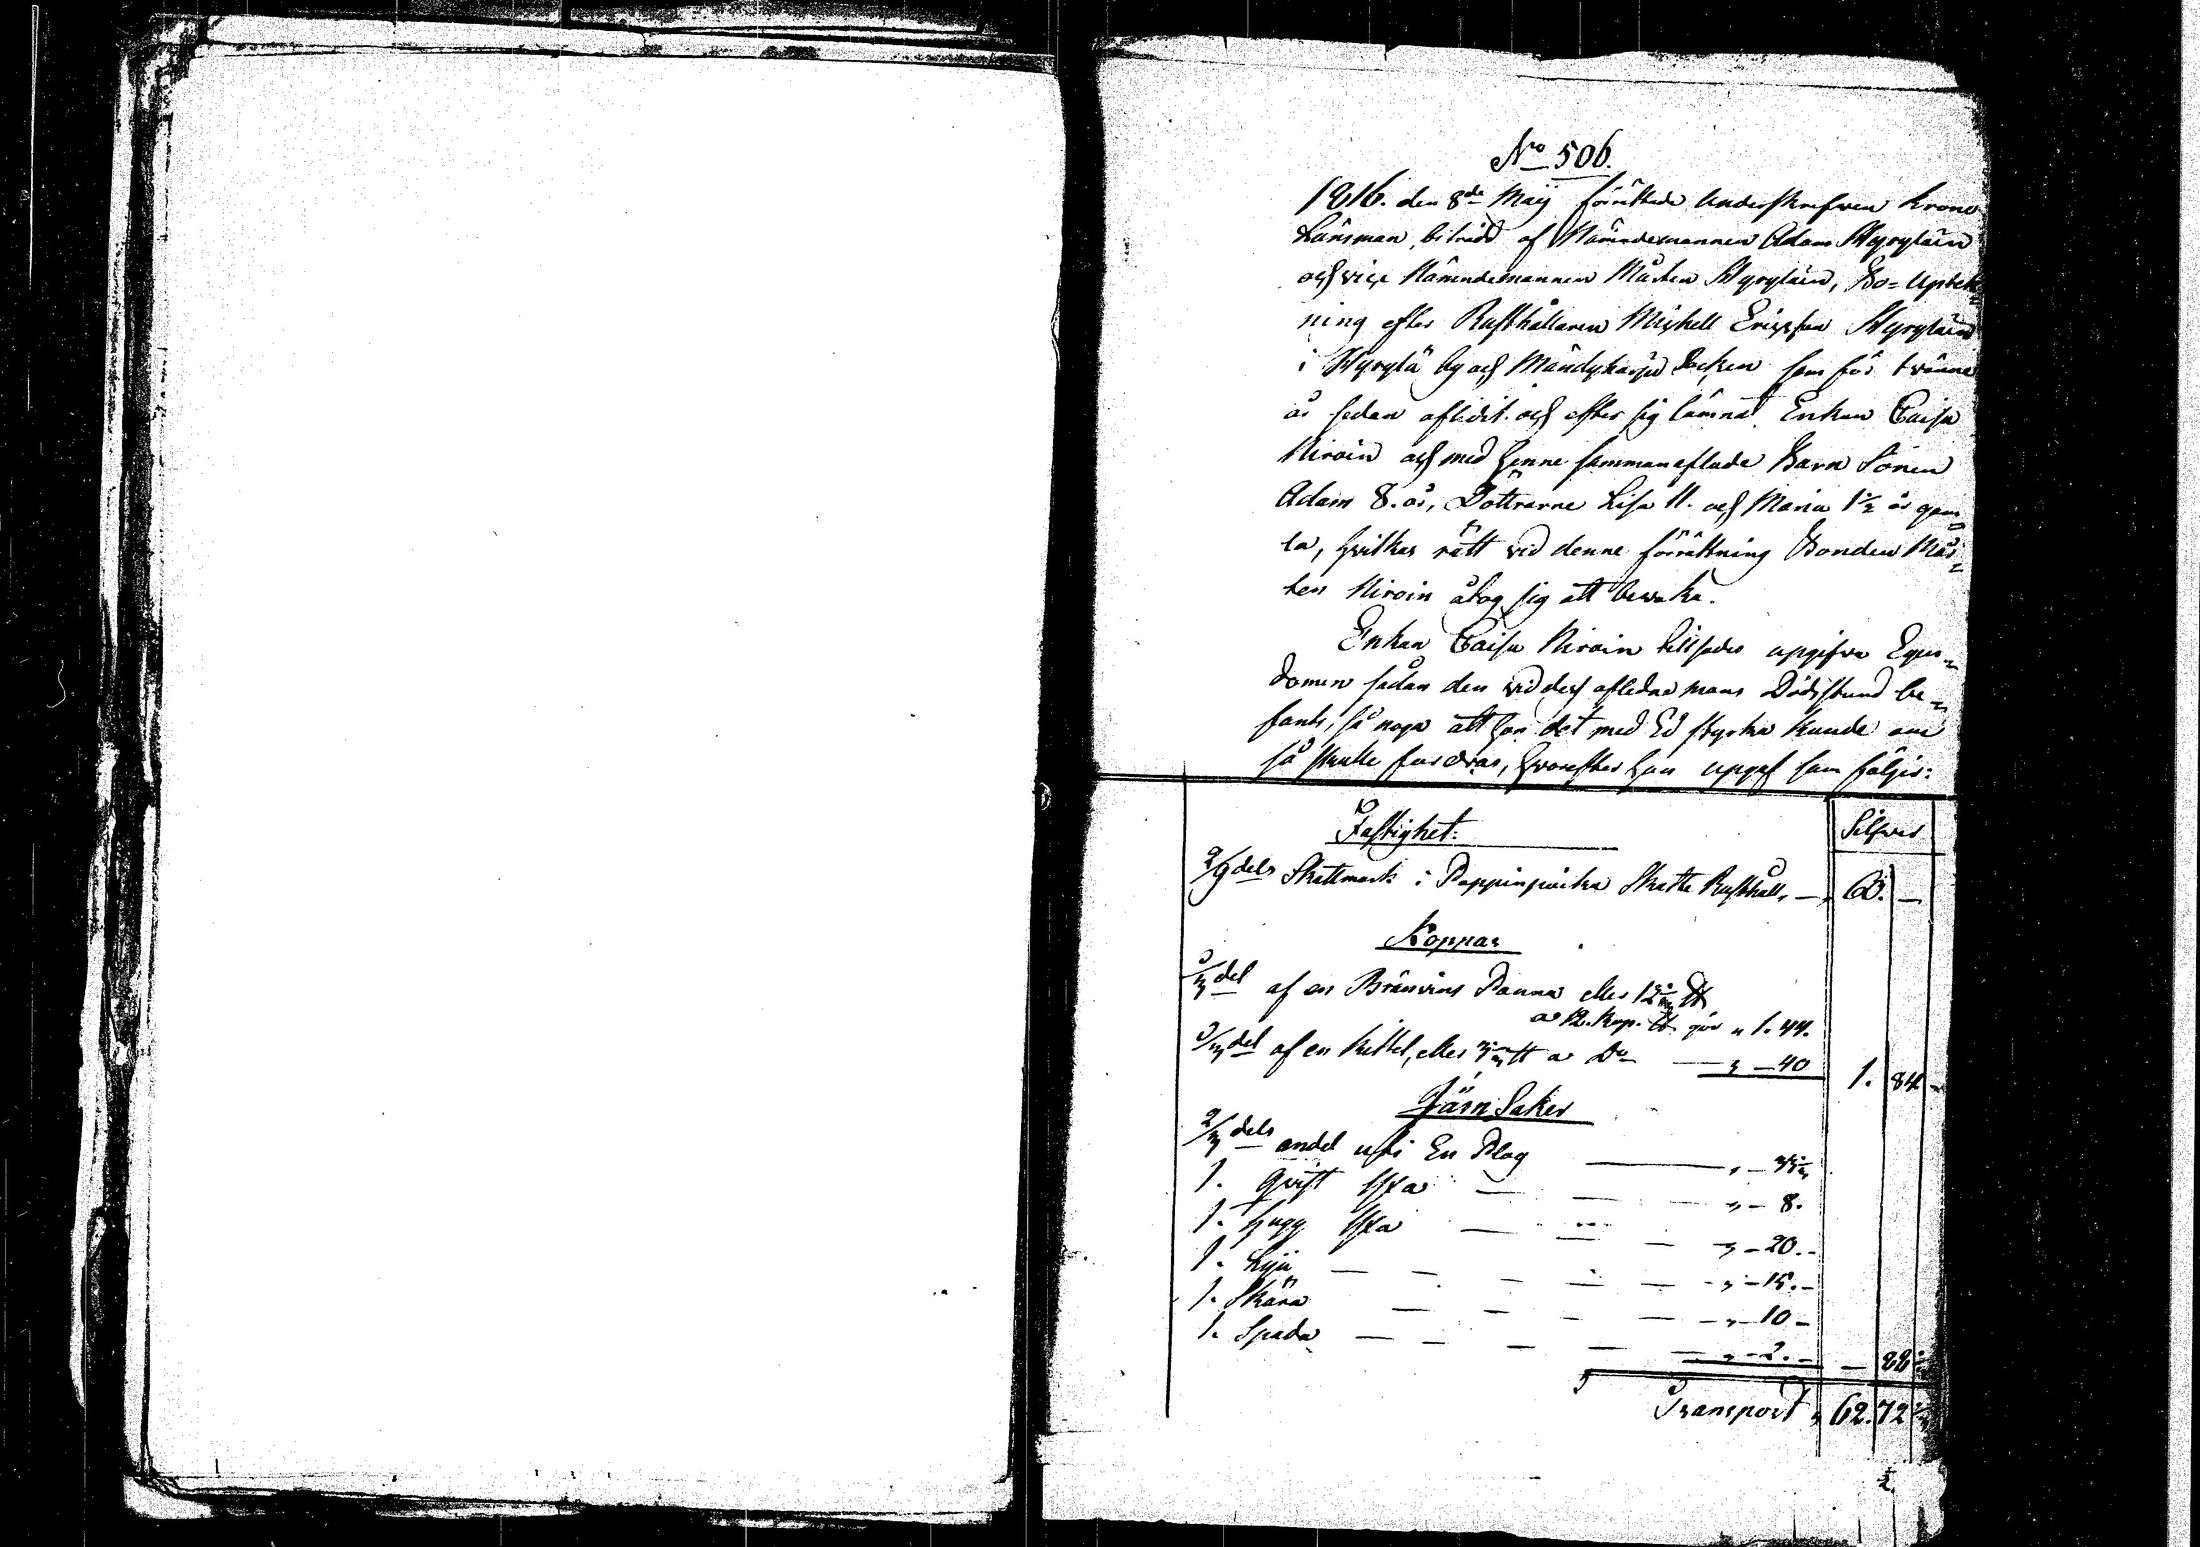 No 506.
1816. den 8de Maij förrättade Underskrefwen Krono
Länsman, biträdd af Nämndemannen Adam Hyryläin
och vice Nämndemannen Mårten Hyryläin, Bo=Uptek=
ning efter Rusthållaren Michell Ericsson Hyryläin
i Hyrylä by och Mändyharju Socken som för tvänne
år sedan aflidit och efter sig lämnat Enkan Caisa
Niroin och med henne sammanaflade Barn Sonen
Adam 8. år, Döttrarne Lisa 11. och Maria 1½ år gam=
la, hvilkas rätt vid denne förrättning Bonden Mår=
ten Niroin åtog sig att bevaka.
Enkan Caisa Niroin tillsades upgifva Egen=
domen sådan den vid dess aflidne mans Dödsstund be=
fants, så noga att hon det med Ed styrka kunde om
så skulle fordras, hvarefter hon uppgaf som följer:
Silfver
Fastighet:
2/9dels Skattmark i Pappinpoika Skatte Rusthåll, — 60. —
Koppar
1/3del af en Bränvins Panna eller 12 ℔
a 12. kop. ℔ gör " 1. 44.
1/3del af en Kittel, eller 3⅓ ℔ a Do — " — 40 1. 84. —
Järn Saker
2/3dels andel uti En Plog — " — 33⅓
1. Qvist Yxa — — — " — 8.
1. Hugg Yxa — — — " — 20. -
1. Lija — — — — — " — 15. -
1. Skära — — — — " — 10 -
1. Spada — — — — — " — 2. - — 88⅓
Transport " 62. 72⅓